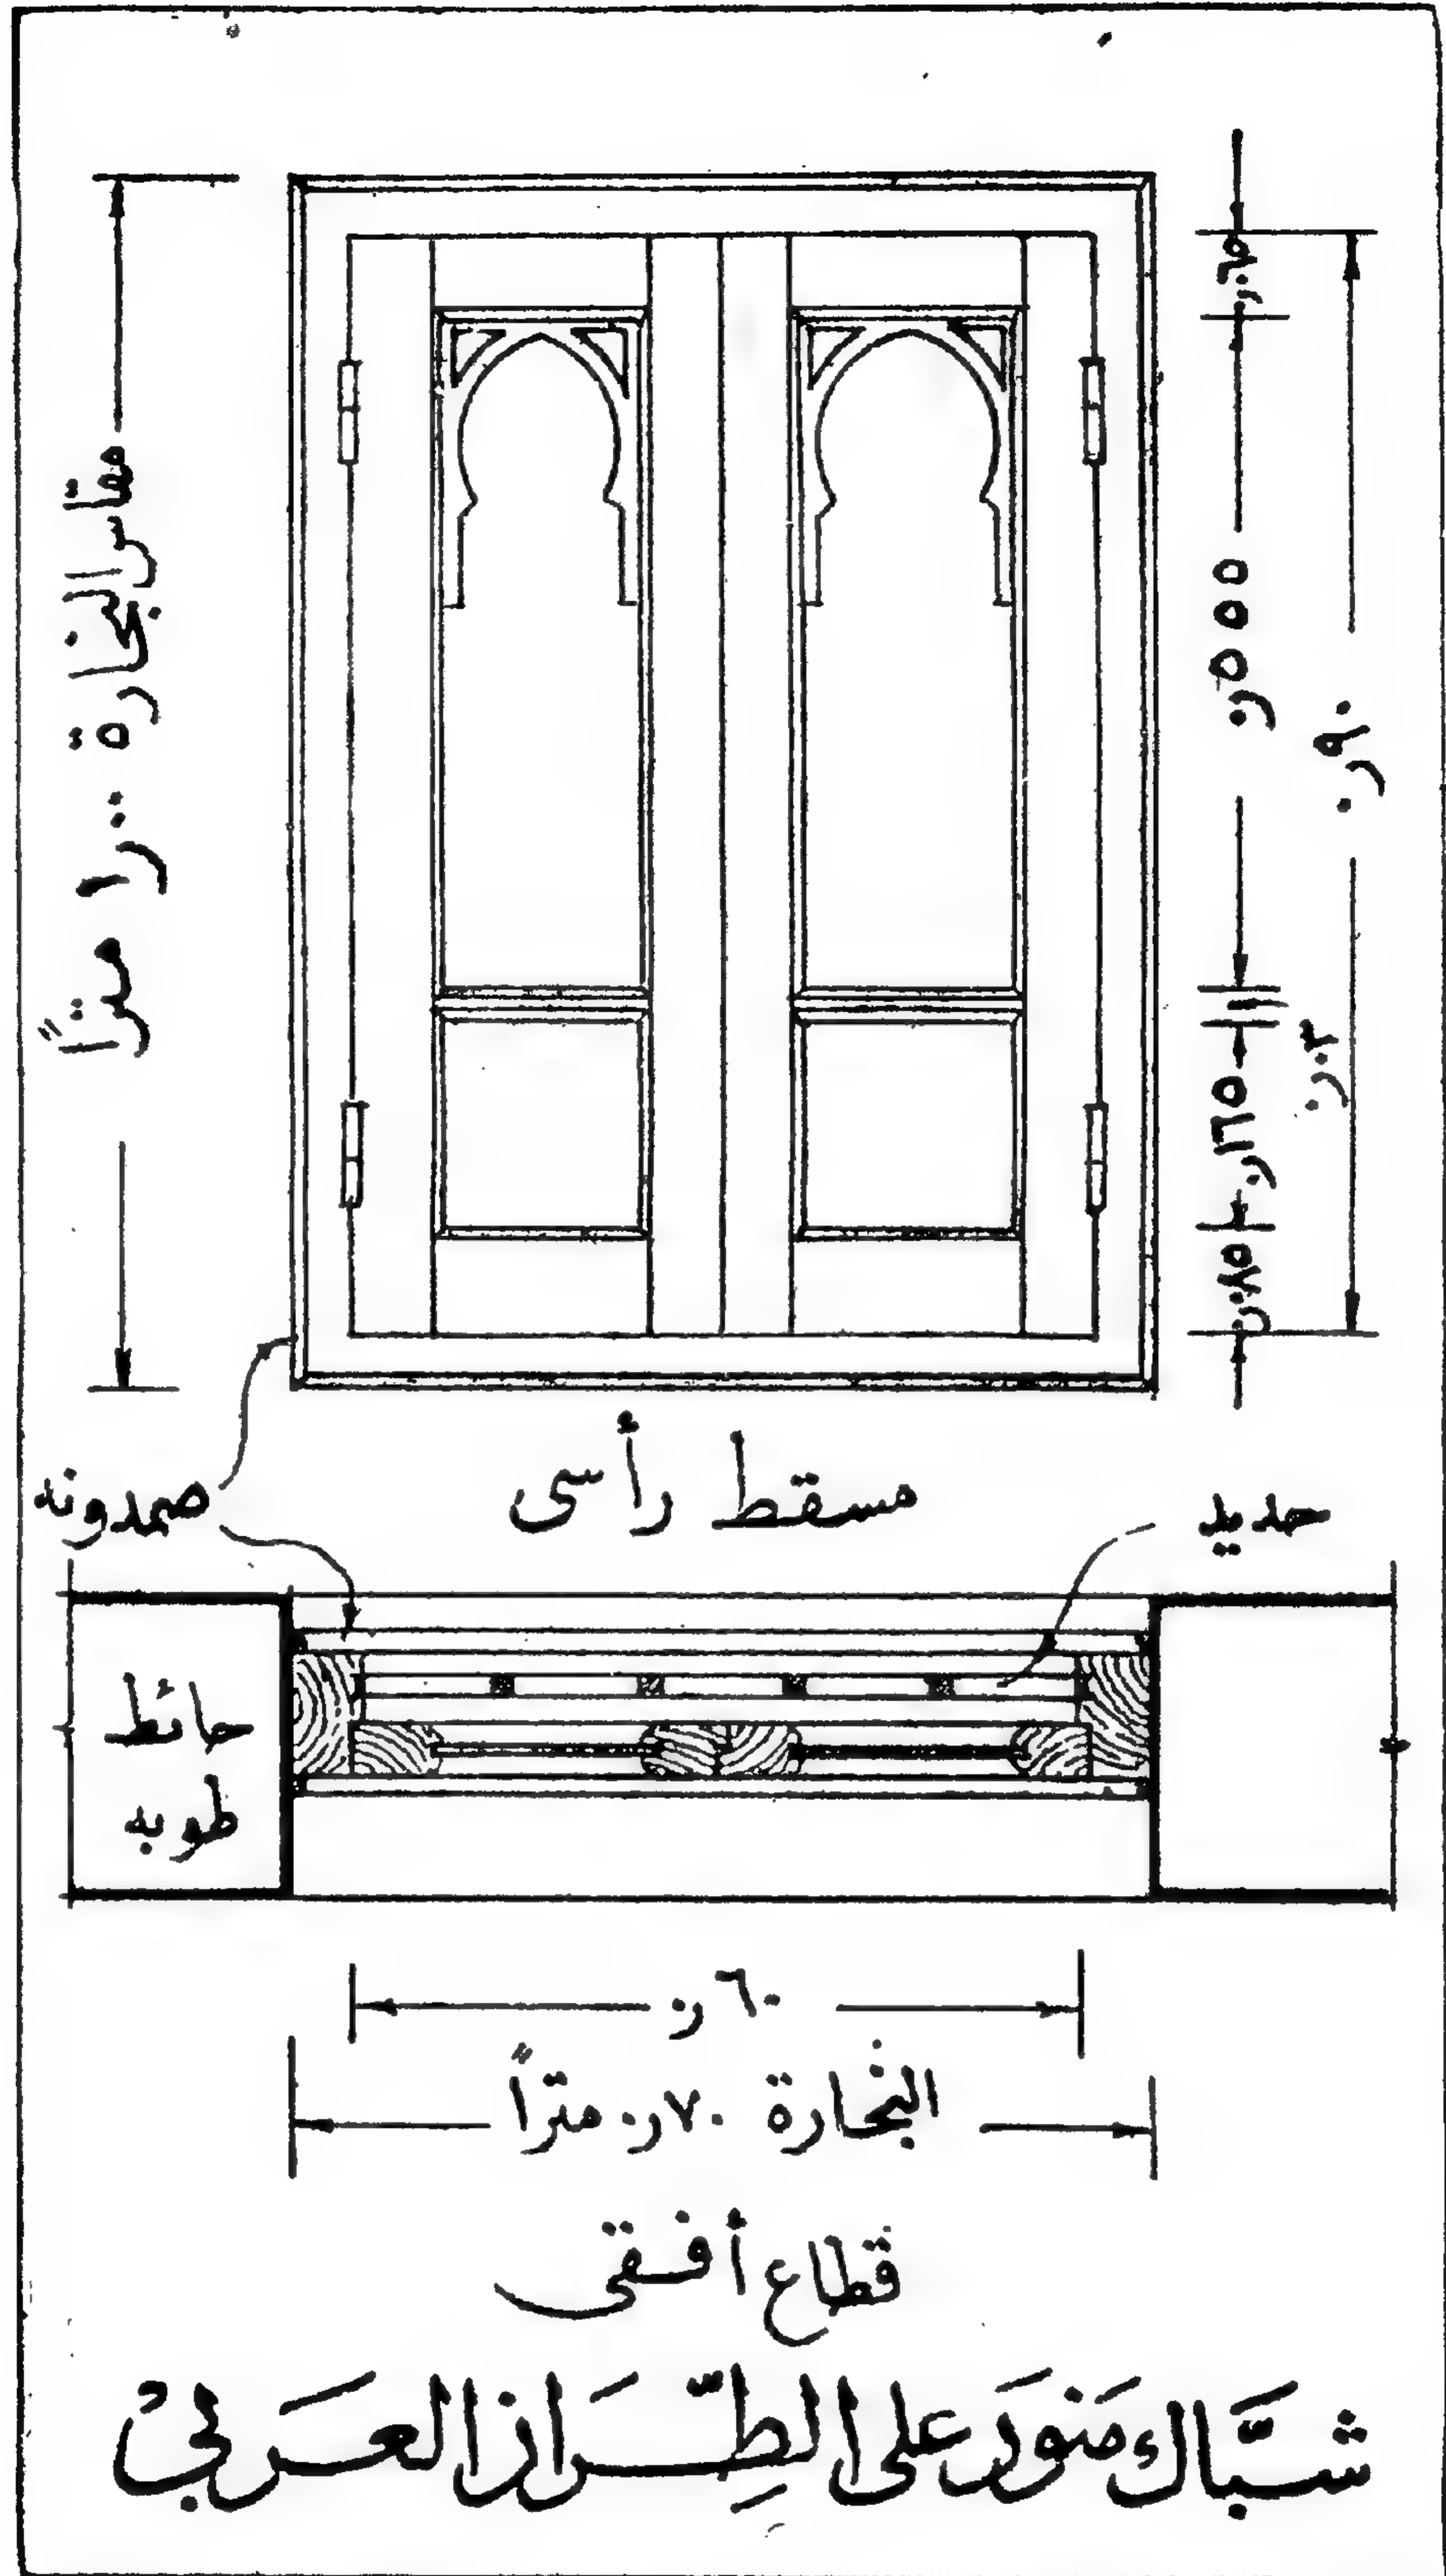 مقاس النجارة ١٫٠٠ متراً
٠٫٠٦٥
٠٫٥٥٥
٠٫٩٠
٠٫٠٣
٠٫١٦٥
٠٫٠٨٥
مسقط رأسى
صمدونه
حديد
حائط
طوبه
٠٫٦٠
النجارة ٠٫٧٠ متراً
قطاع أفقى
شبَّاك مَنوَر على الطِّرَاز العَربيْ